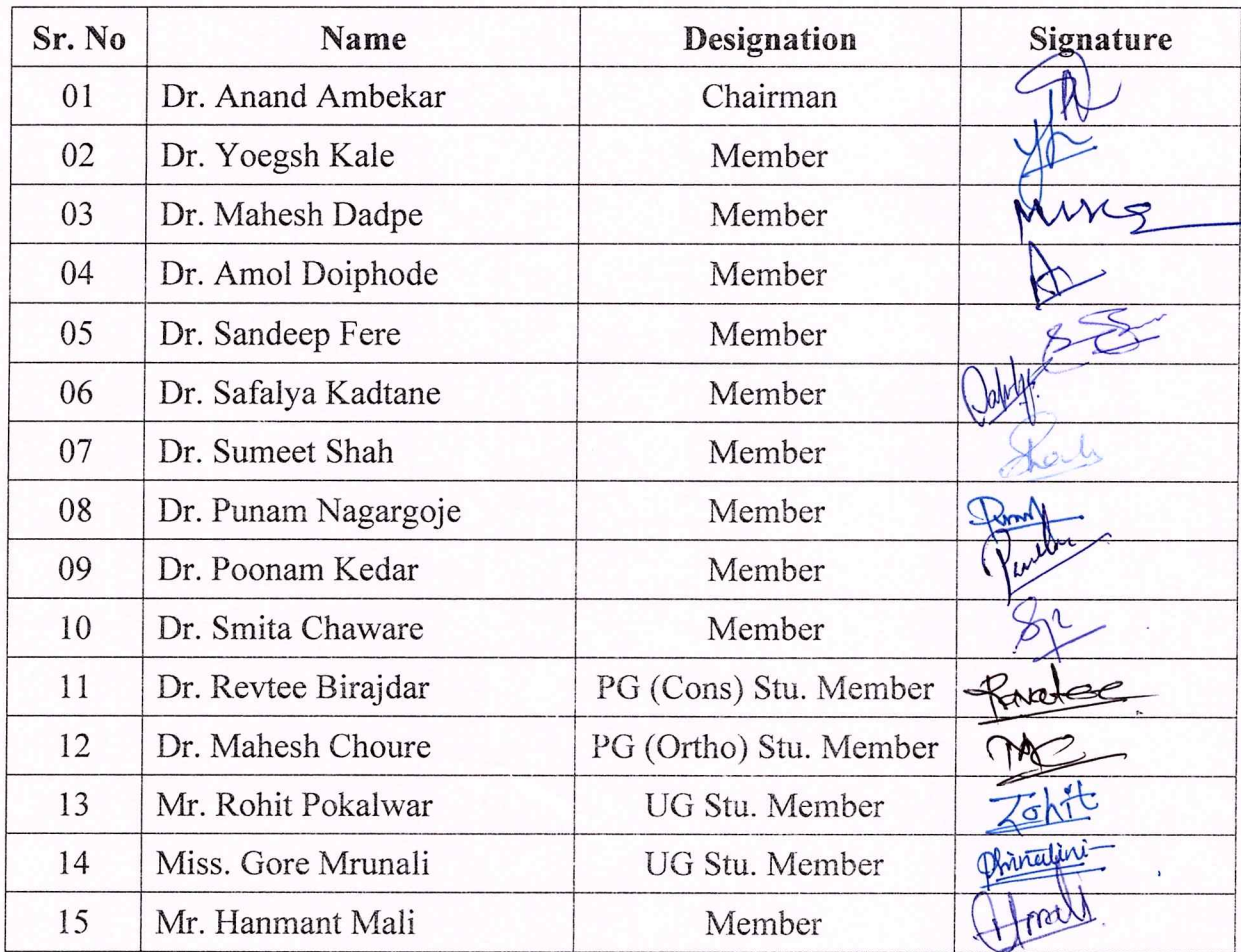 Sr. No Name Designation Signature
01 Dr. Anand Ambekar Chairman
02 Dr. Yoegsh Kale Member
03 Dr. Mahesh Dadpe Member
04 Dr. Amol Doiphode Member
05 Dr. Sandeep Fere Member
06 Dr. Safalya Kadtane Member
07 Dr. Sumeet Shah Member
08 Dr. Punam Nagargoje Member
09 Dr. Poonam Kedar Member
10 Dr. Smita Chaware Member
11 Dr. Revtee Birajdar PG (Cons) Stu. Member
12 Dr. Mahesh Choure PG (Ortho) Stu. Member
13 Mr. Rohit Pokalwar UG Stu. Member
14 Miss. Gore Mrunali UG Stu. Member
15 Mr. Hanmant Mali Member